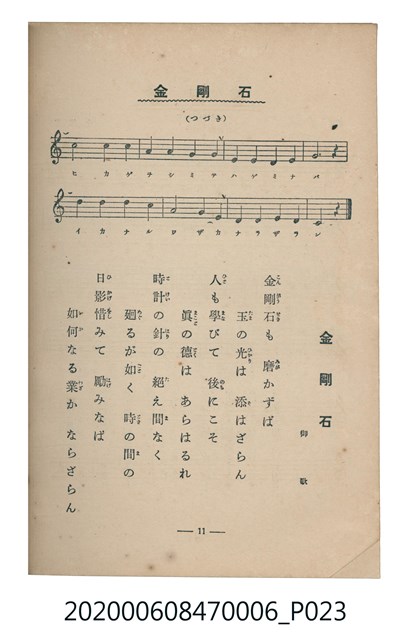 金剛石
(つづき)
ヒカゲヲシミテハゲミナバ
イカナルワザカナラザラン
金剛石
御歌
金剛石も 磨かずば
玉の光は 添はざらん
人も學びて 後にこそ
眞の德は あらはるれ
時計の針の 絕え間なく
廻るが如く 時の間の
日影惜みて 勵みなば
如何なる業か ならざらん
— 11 —
202000608470006_P023